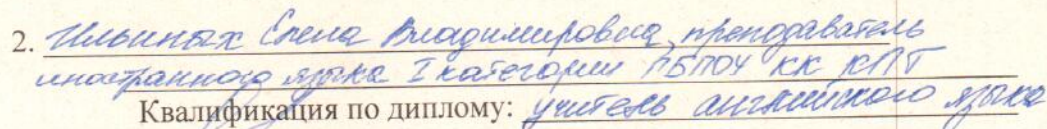 2. Ильиных Елена Владимировна, преподаватель
иностранного языка I категории ГБПОУ КК КПТ
Квалификация по диплому: учитель английского языка